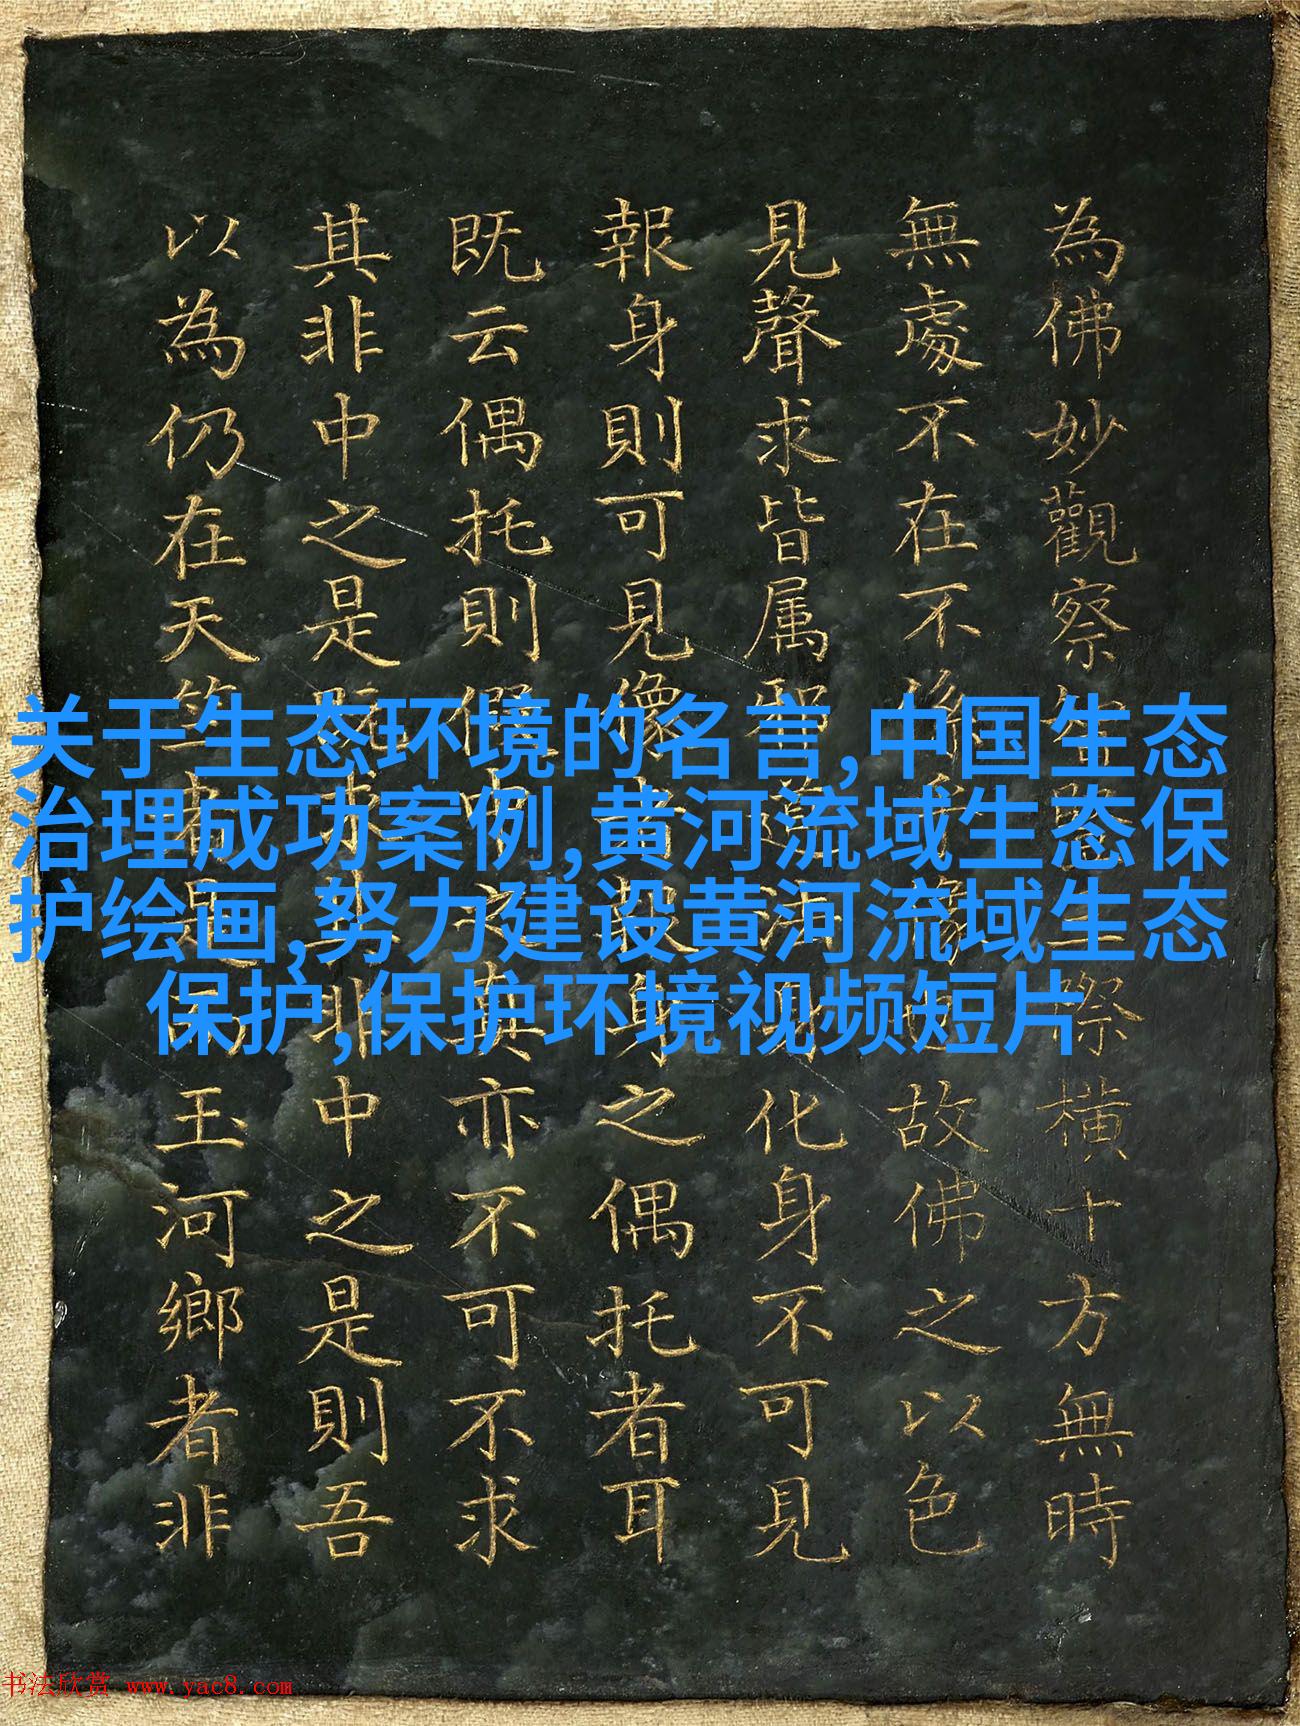 为佛妙觀察際橫十方無時
無處不在不故佛之以色
見聲求皆属邪道法身化身不可見
報身則可見像身之偶托者耳
既云偶托則假亦不可不求
其非中之是求其非中之是則吾
以為仍在天竺者是玉河鄉者非
关于生态环境的名言,中国生态
治理成功案例,黄河流域生态保
护绘画,努力建设黄河流域生态
保护,保护环境视频短片
书法欣赏 www.yac8.com